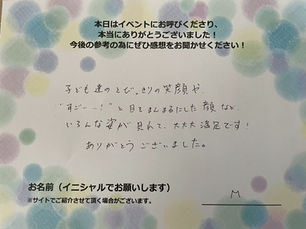 本日はイベントにお呼びくださり、
本当にありがとうございました！
今後の参考の為にぜひ感想をお聞かせください！
子ども達のとびっきりの笑顔や、
"すご〜〜！"と目をまんまるにした顔など
いろんな姿が見れて、大大大満足です！
ありがとうございました。
お名前（イニシャルでお願いします）
M
※サイトでご紹介させて頂く場合がございます。